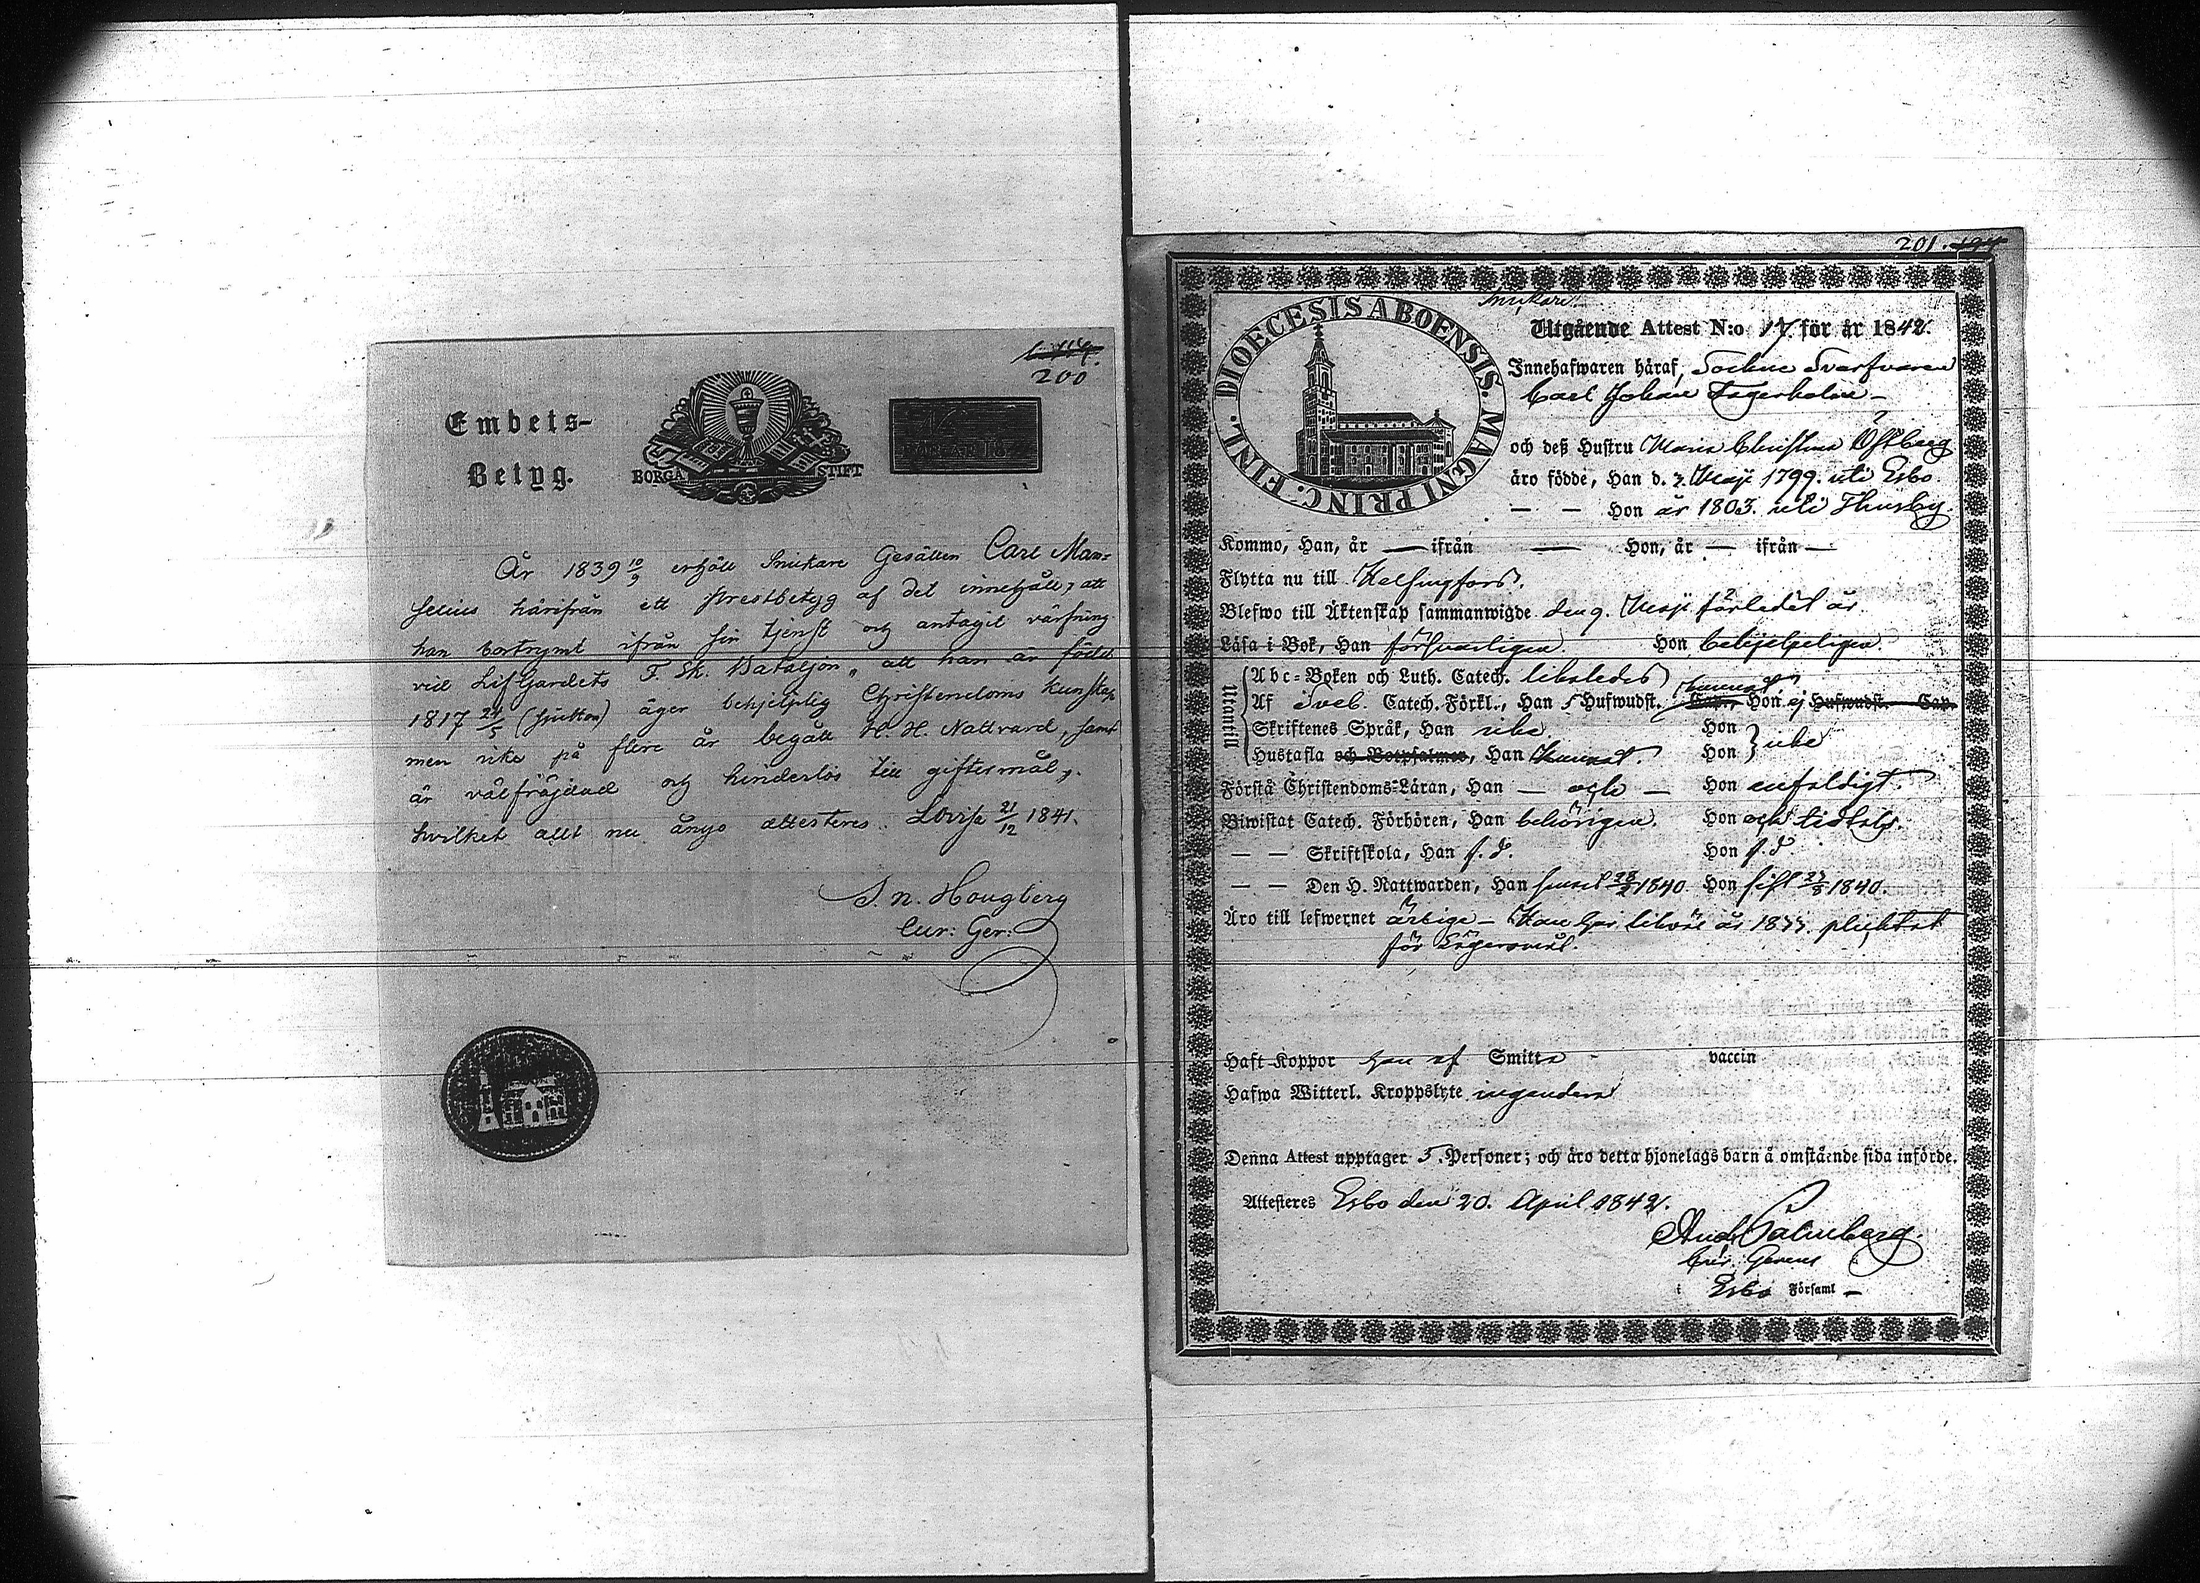 200
Embets-
Betyg.
BORGÅ STIFT
År 1839 10/9 erhöll Snickare Gesällen Carl Man-
selius härifrån ett prestbetyg af det innehåll, att
han bortrymt ifrån sin tjenst och antagit värfning
vid LifGardets F. Sk. Bataljon, att han är född
1817 24/5 (sjutton) äger behjelplig Christendoms kunskap
men icke på flere år begått H. H. Nattvard, samt
är välfräjdad och hinderlös till giftermål,
hvilket allt nu ånyo attesteras. Lovisa 21/12 1841.
S. N. Hougberg
Cur: Ger:
201. 194
Snickare
DIOECESIS ABOENSIS. MAGNI PRINC. FINL.
Utgående Attest N:o 17 för år 1842.
Innehafwaren häraf, Sockne Svarfvaren
Carl Johan Fagerholm –
och deß Hustru Maria Christina Östberg
äro födde, Han d. 3. Maji 1799. uti Esbo.
— — Hon år 1803. uti Thusby.
Kommo, Han, år — ifrån — Hon, år — ifrån —
Flytta nu till Helsingfors.
Blefwo till Äktenskap sammanwigde den 9. Maji förledet år.
Läsa i Bok, Han försvarligen Hon behjelpeligen.
Utantill
Abc-Boken och Luth. Catech. likaledes
Af Sveb. Catech. Förkl., Han 5 Hufwudst. Cap., Hon ej Hufwudst. Cap.
Skriftenes Språk, Han icke Hon
Hustafla och Botpsalmer, Han kunnat. Hon } icke
Förstå Christendoms-Läran, Han — och — Hon enfaldigt.
Biwistat Catech. Förhören, Han behörigen. Hon och tidtals.
— — Skriftskola, Han f. d. Hon f. d.
— — Den H. Nattwarden, Han 1840 Hon sist 1840.
Äro till lefwernet ärbige – Han har likväl år plicktat
för Lägersmål.
Haft Koppor han af Smitta vaccin
Hafwa Witterl. Kroppslyte ingendera
Denna Attest upptager 5. Personer; och äro detta hjonelags barn å omstående sida införde.
Attesteres Esbo den 20. April 1842.
And. Palmberg.
Cur. Gerens
i Esbo Församl –